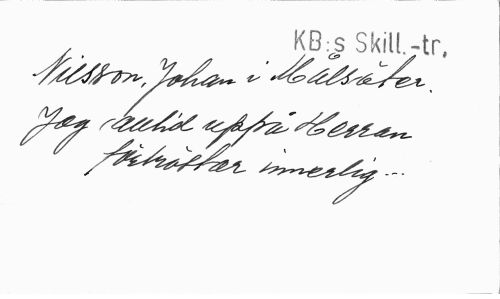 KB:s Skill.-tr.
Nilsson, Johan i Målsäter.
Jag alltid uppå Herran
förtröstar innerlig...